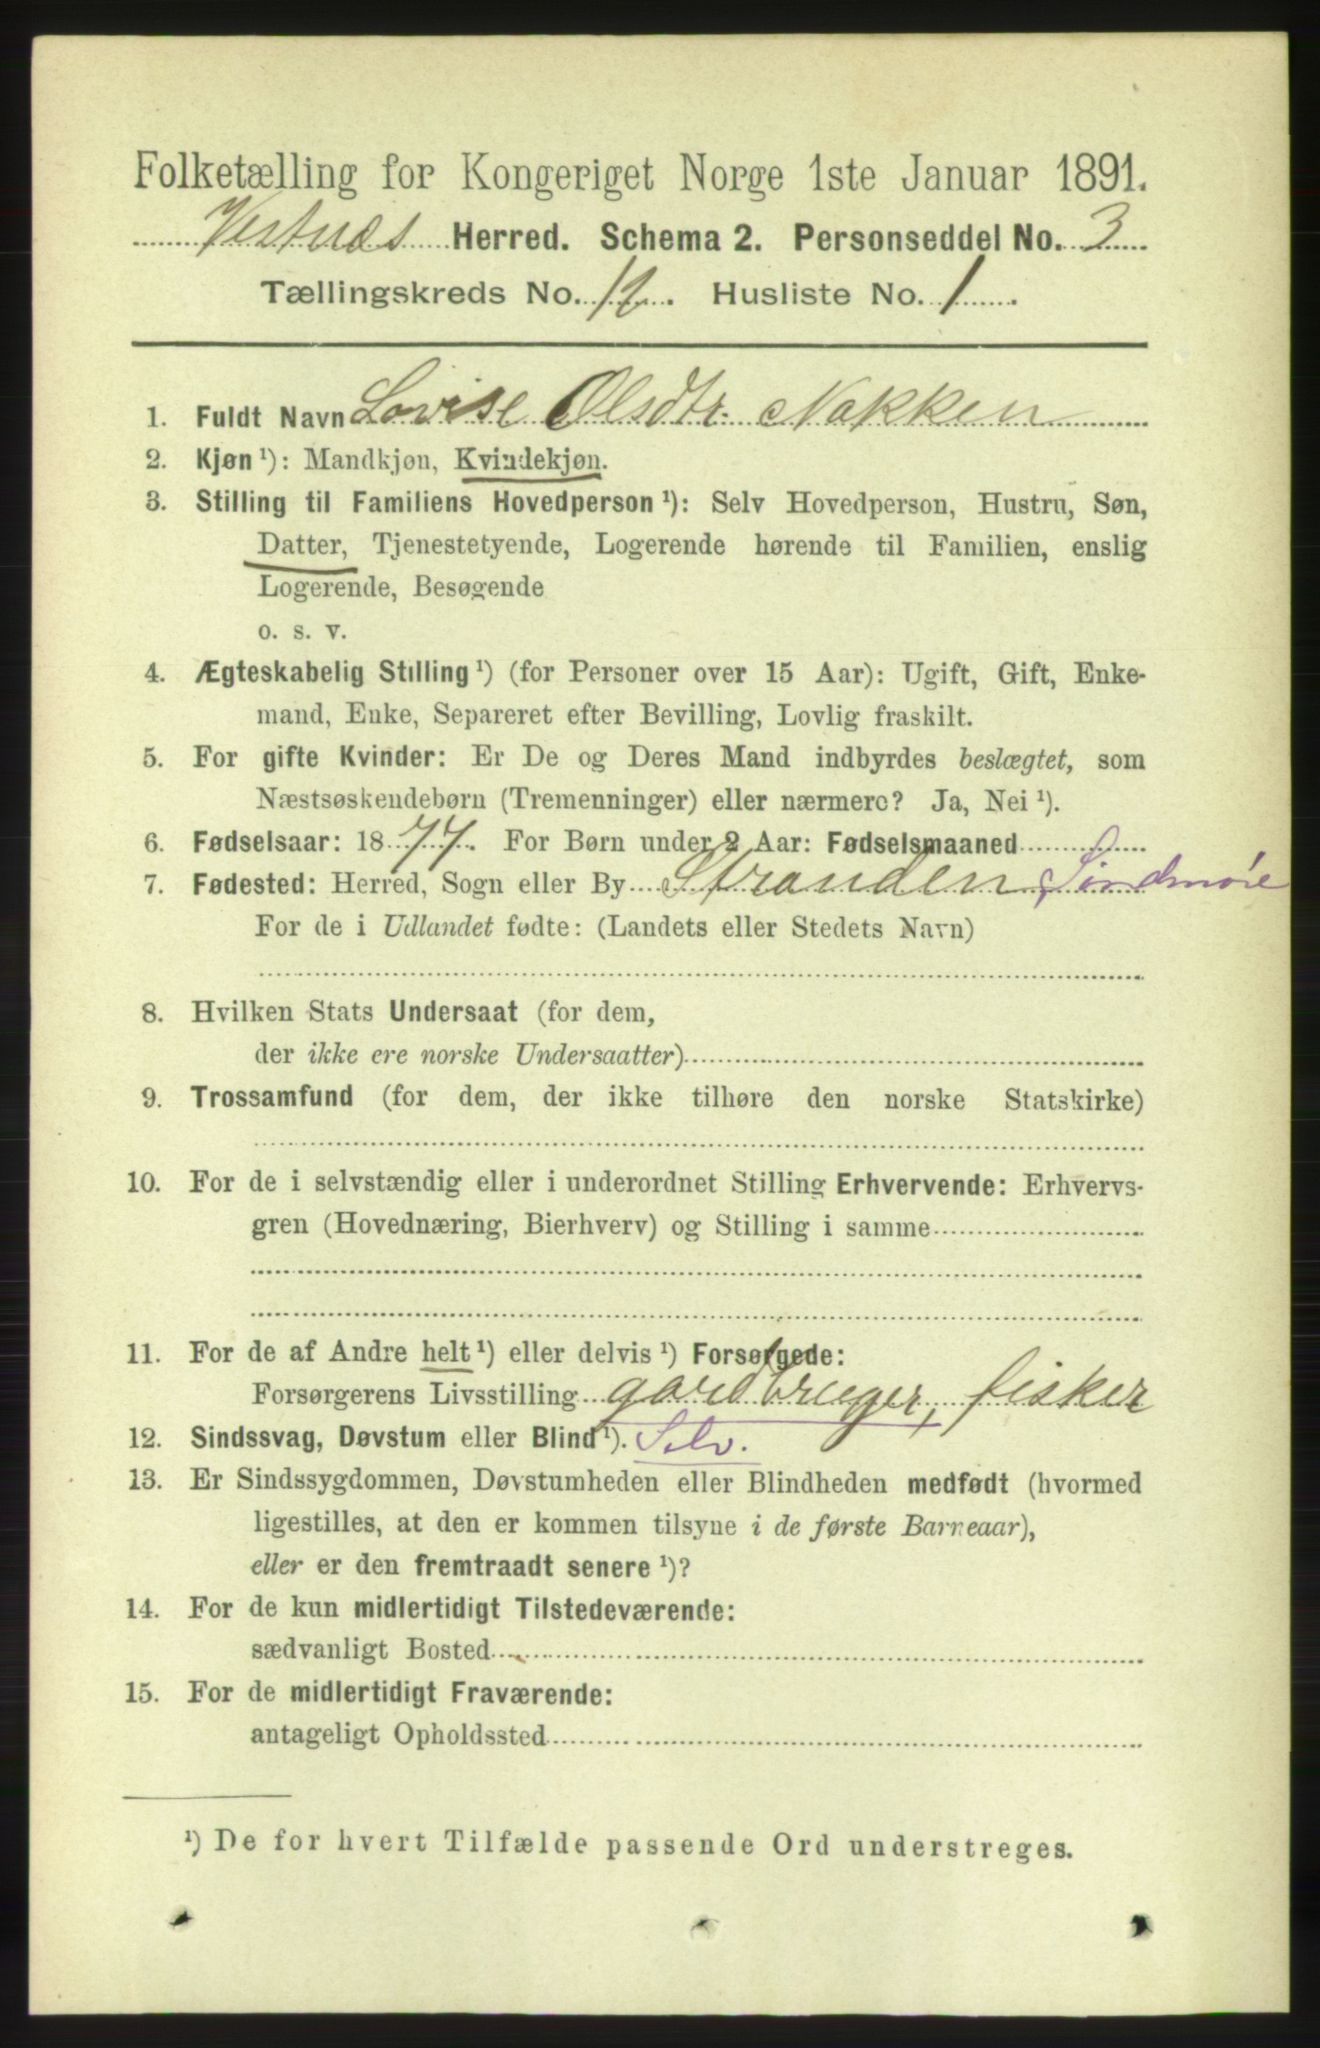 Folketælling for Kongeriget Norge 1ste Januar 1891.
Vestnæs Herred. Schema 2. Personseddel No. 3
Tællingskreds No. 12. Husliste No. 1
1. Fuldt Navn Lovise Olsdtr. Nakken
2. Kjøn ¹): Mandkjøn, Kvindekjøn.
3. Stilling til Familiens Hovedperson ¹): Selv Hovedperson, Hustru, Søn,
Datter, Tjenestetyende, Logerende hørende til Familien, enslig
Logerende, Besøgende
o. s. v.
4. Ægteskabelig Stilling ¹) (for Personer over 15 Aar): Ugift, Gift, Enke-
mand, Enke, Separeret efter Bevilling, Lovlig fraskilt.
5. For gifte Kvinder: Er De og Deres Mand indbyrdes beslægtet, som
Næstsøskendebørn (Tremenninger) eller nærmere? Ja, Nei ¹).
6. Fødselsaar: 1877. For Børn under 2 Aar: Fødselsmaaned
7. Fødested: Herred, Sogn eller By Stranden, Søndmøre
For de i Udlandet fødte: (Landets eller Stedets Navn)
8. Hvilken Stats Undersaat (for dem,
der ikke ere norske Undersaatter)
9. Trossamfund (for dem, der ikke tilhøre den norske Statskirke)
10. For de i selvstændig eller i underordnet Stilling Erhvervende: Erhvervs-
gren (Hovednæring, Bierhverv) og Stilling i samme
11. For de af Andre helt ¹) eller delvis ¹) Forsørgede:
Forsørgerens Livsstilling gardbruger, fisker
12. Sindssvag, Døvstum eller Blind ¹). Selv.
13. Er Sindssygdommen, Døvstumheden eller Blindheden medfødt (hvormed
ligestilles, at den er kommen tilsyne i de første Barneaar),
eller er den fremtraadt senere ¹)?
14. For de kun midlertidigt Tilstedeværende:
sædvanligt Bosted
15. For de midlertidigt Fraværende:
antageligt Opholdssted
¹) De for hvert Tilfælde passende Ord understreges.